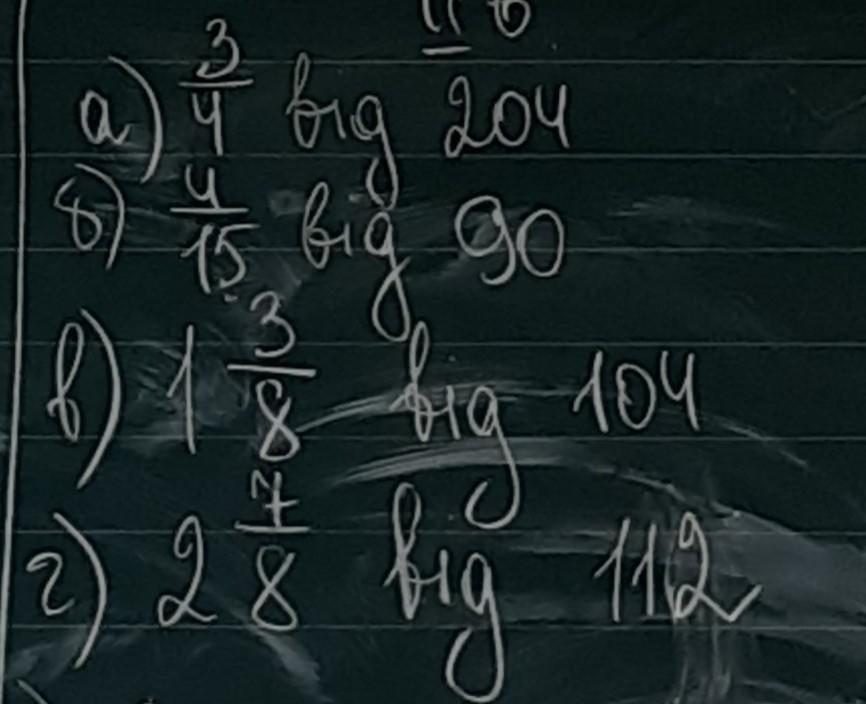 а) 3/4 від 204
б) 4/15 від 90
в) 1 3/8 від 104
г) 2 7/8 від 112